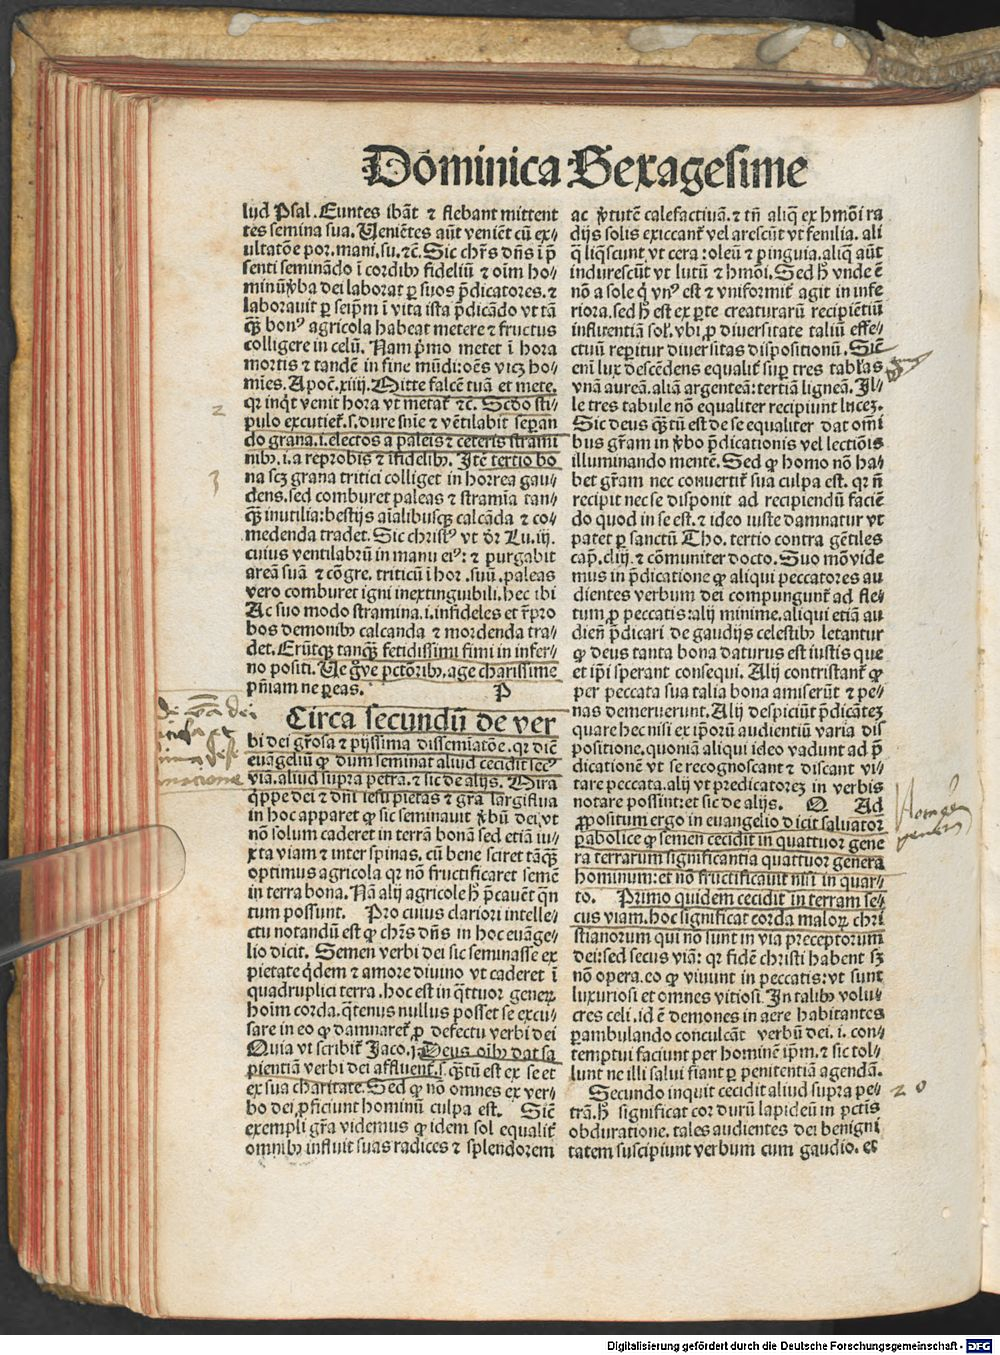 Dōminica Sexagesime
lud Psal. Euntes ibāt ⁊ flebant mittent
tes semina sua. Ueniētes aūt veniēt cū ex⸗
ultatōe por. mani. su. ⁊c̄. Sic chr̄s dn̄s ī p̄
senti seminādo ī cordibꝫ fideliū ⁊ oīm ho⸗
minū v̄ba dei laborat ꝑ suos p̄dicatores. ⁊
laborauit ꝑ seip̄m ī vita ista p̄dicādo vt tā
qꝫ̄ bonꝰ agricola habeat metere ⁊ fructus
colligere in celū. Nam p̄mo metet ī hora
mortis ⁊ tandē in fine mūdi: oēs vicꝫ ho⸗
mīes. Apoc̄. xiiij. Mitte falcē tuā et mete.
qꝛ inq̄t venit hora vt metat᷑ ⁊c̄. Scd̄o sti⸗
pulo excutiet᷑. s. dure sn̄ie ⁊ vētilabit sepan
do grana. i. electos a paleis ⁊ ceteris strami
nibꝫ. i. a reprobis ⁊ īfidelibꝫ. Itē tertio bo
na scꝫ grana tritici colliget in horrea gau⸗
dens. sed comburet paleas ⁊ stramīa tan⸗
qꝫ̄ inutilia: bestijs aīalibusqꝫ calcāda ⁊ co⸗
medenda tradet. Sic christꝰ vt dr̄ Lu. iij.
cuius ventilabrū in manu eiꝰ: ⁊ purgabit
areā suā ⁊ cōgre. triticū ī hor. suū. paleas
vero comburet igni inextinguibili. hec ibi
Ac suo modo stramina. i. infideles et r̄pro
bos demonibꝫ calcanda ⁊ mordenda tra⸗
det. Erūtqꝫ tanqꝫ̄ fetidissimi fimi in infer⸗
no positi. Ue g̊ ve pctōribꝫ. age charissime
pn̄iam ne ꝑeas. P
Circa secundū de ver
bi dei gr̄osa ⁊ pijssima dissemīatōe. qꝛ dic̄
euangeliū ꝙ dum seminat aliud cecidit secꝰ
via. aliud supra petrā. ⁊ sic de alijs. Mira
q̄ppe dei ⁊ dn̄i iesu pietas ⁊ gr̄a largiflua
in hoc apparet ꝙ sic seminauit v̄bū dei. vt
nō solum caderet in terrā bonā sed etiā iu⸗
xta viam ⁊ inter spinas, cū bene sciret tāqꝫ̄
optimus agricola qꝛ nō fructificaret semē
in terra bona. Nā alij agricole h̄ p̄cauēt q̄n
tum possunt. Pro cuius clariori intelle⸗
ctu notandū est ꝙ chr̄s dn̄s in hoc euāge⸗
lio dicit. Semen verbi dei sic seminasse ex
pietate q̄dem ⁊ amore diuino vt caderet ī
quadruplici terra. hoc est in q̄ttuor generꝝ
hoīm corda. q̄tenus nullus posset se excu⸗
sare in eo ꝙ damnaret᷑ ꝓ defectu verbi dei
Quia vt scribit᷑ Jaco. j. Deus oībꝫ dat sa
pientiam verbi dei affluent᷑. s. qꝫ̄tū est ex se et
ex sua charitate. Sed ꝙ nō omnes ex ver⸗
bo dei ꝓficiunt hominū culpa est. Sic̄
exempli gr̄a videmus ꝙ idem sol equalit᷑
omnibꝫ influit suas radices ⁊ splendorem
ac v̄tutē calefactiuā. ⁊ tn̄ aliq̄ ex hmōi ra
dijs solis exiccant᷑ vel arescūt vt fenilia. ali
q̄ liq̄scunt vt cera: oleū ⁊ pinguia. aliq̄ aūt
indurescūt vt lutū ⁊ hmōi. Sed h̄ vnde ē
nō a sole q̄ vnꝰ est ⁊ vniformit᷑ agit in infe
riora. sed h̄ est ex ꝑte creaturarū recipiētiū
influentiā sol. vbi ꝓ diuersitate taliū effe⸗
ctuū reperitur diuersitas dispositionū. Sic̄
eni lux descēdens equalit᷑ suꝑ tres tablas
vnā aureā. aliā argenteā: tertiā ligneā. Il⸗
le tres tabule nō equaliter recipiunt lucez.
Sic deus qꝫ̄tū est de se equaliter dat omī
bus gr̄am in v̄bo p̄dicationis vel lectiōis
illuminando mentē. Sed ꝙ homo nō ha⸗
bet gr̄am nec conuertit᷑ sua culpa est. qꝛ n̄
recipit nec se disponit ad recipiendū faciē
do quod in se est. ⁊ ideo iuste damnatur vt
patet ꝑ sanctū Tho. tertio contra gētiles
cap̄. cliij. ⁊ cōmuniter docto. Suo mō vide
mus in p̄dicatione ꝙ aliqui peccatores au
dientes verbum dei compungunt᷑ ad fle⸗
tum ꝓ peccatis: alij minime. aliqui etiā au
dien̄ p̄dicari de gaudijs celestibꝫ letantur
ꝙ deus tanta bona daturus est iustis que
et ip̄i sperant consequi. Alij contristant᷑ ꝙ
per peccata sua talia bona amiserūt ⁊ pe⸗
nas demeruerunt. Alij despiciūt p̄dicātez
quare hec nisi ex ip̄orū audientiū varia dis
positione. quoniā aliqui ideo vadunt ad p̄
dicationē vt se recognoscant ⁊ discant vi⸗
tare peccata. alij vt predicatorez in verbis
notare possint: et sic de alijs. Q Ad
ꝓpositum ergo in euangelio dicit saluator
ꝑabolice ꝙ semen cecidit in quattuor gene
ra terrarum significantia quattuor genera
hominum: et nō fructificauit nisi in quar⸗
to. Primo quidem cecidit in terram se⸗
cus viam. hoc significat corda maloꝝ chri
stianorum qui nō sunt in via preceptorum
dei: sed secus viā: qꝛ fidē christi habent sꝫ
nō opera. eo ꝙ viuunt in peccatis: vt sunt
luxuriosi et omnes vitiosi. In talibꝫ volu⸗
cres celi. id ē demones in aere habitantes
ꝑambulando conculcāt verbū dei. i. con⸗
temptui faciunt per hominē ip̄m. ⁊ sic tol⸗
lunt ne illi salui fiant ꝑ penitentiā agendā.
Secundo inquit cecidit aliud supra pe⸗
trā. h̄ significat cor durū lapideū in pctīs
obduratione. tales audientes dei benigni
tatem suscipiunt verbum cum gaudio. et
2
3
20
Digitalisierung gefördert durch die Deutsche Forschungsgemeinschaft - DFG